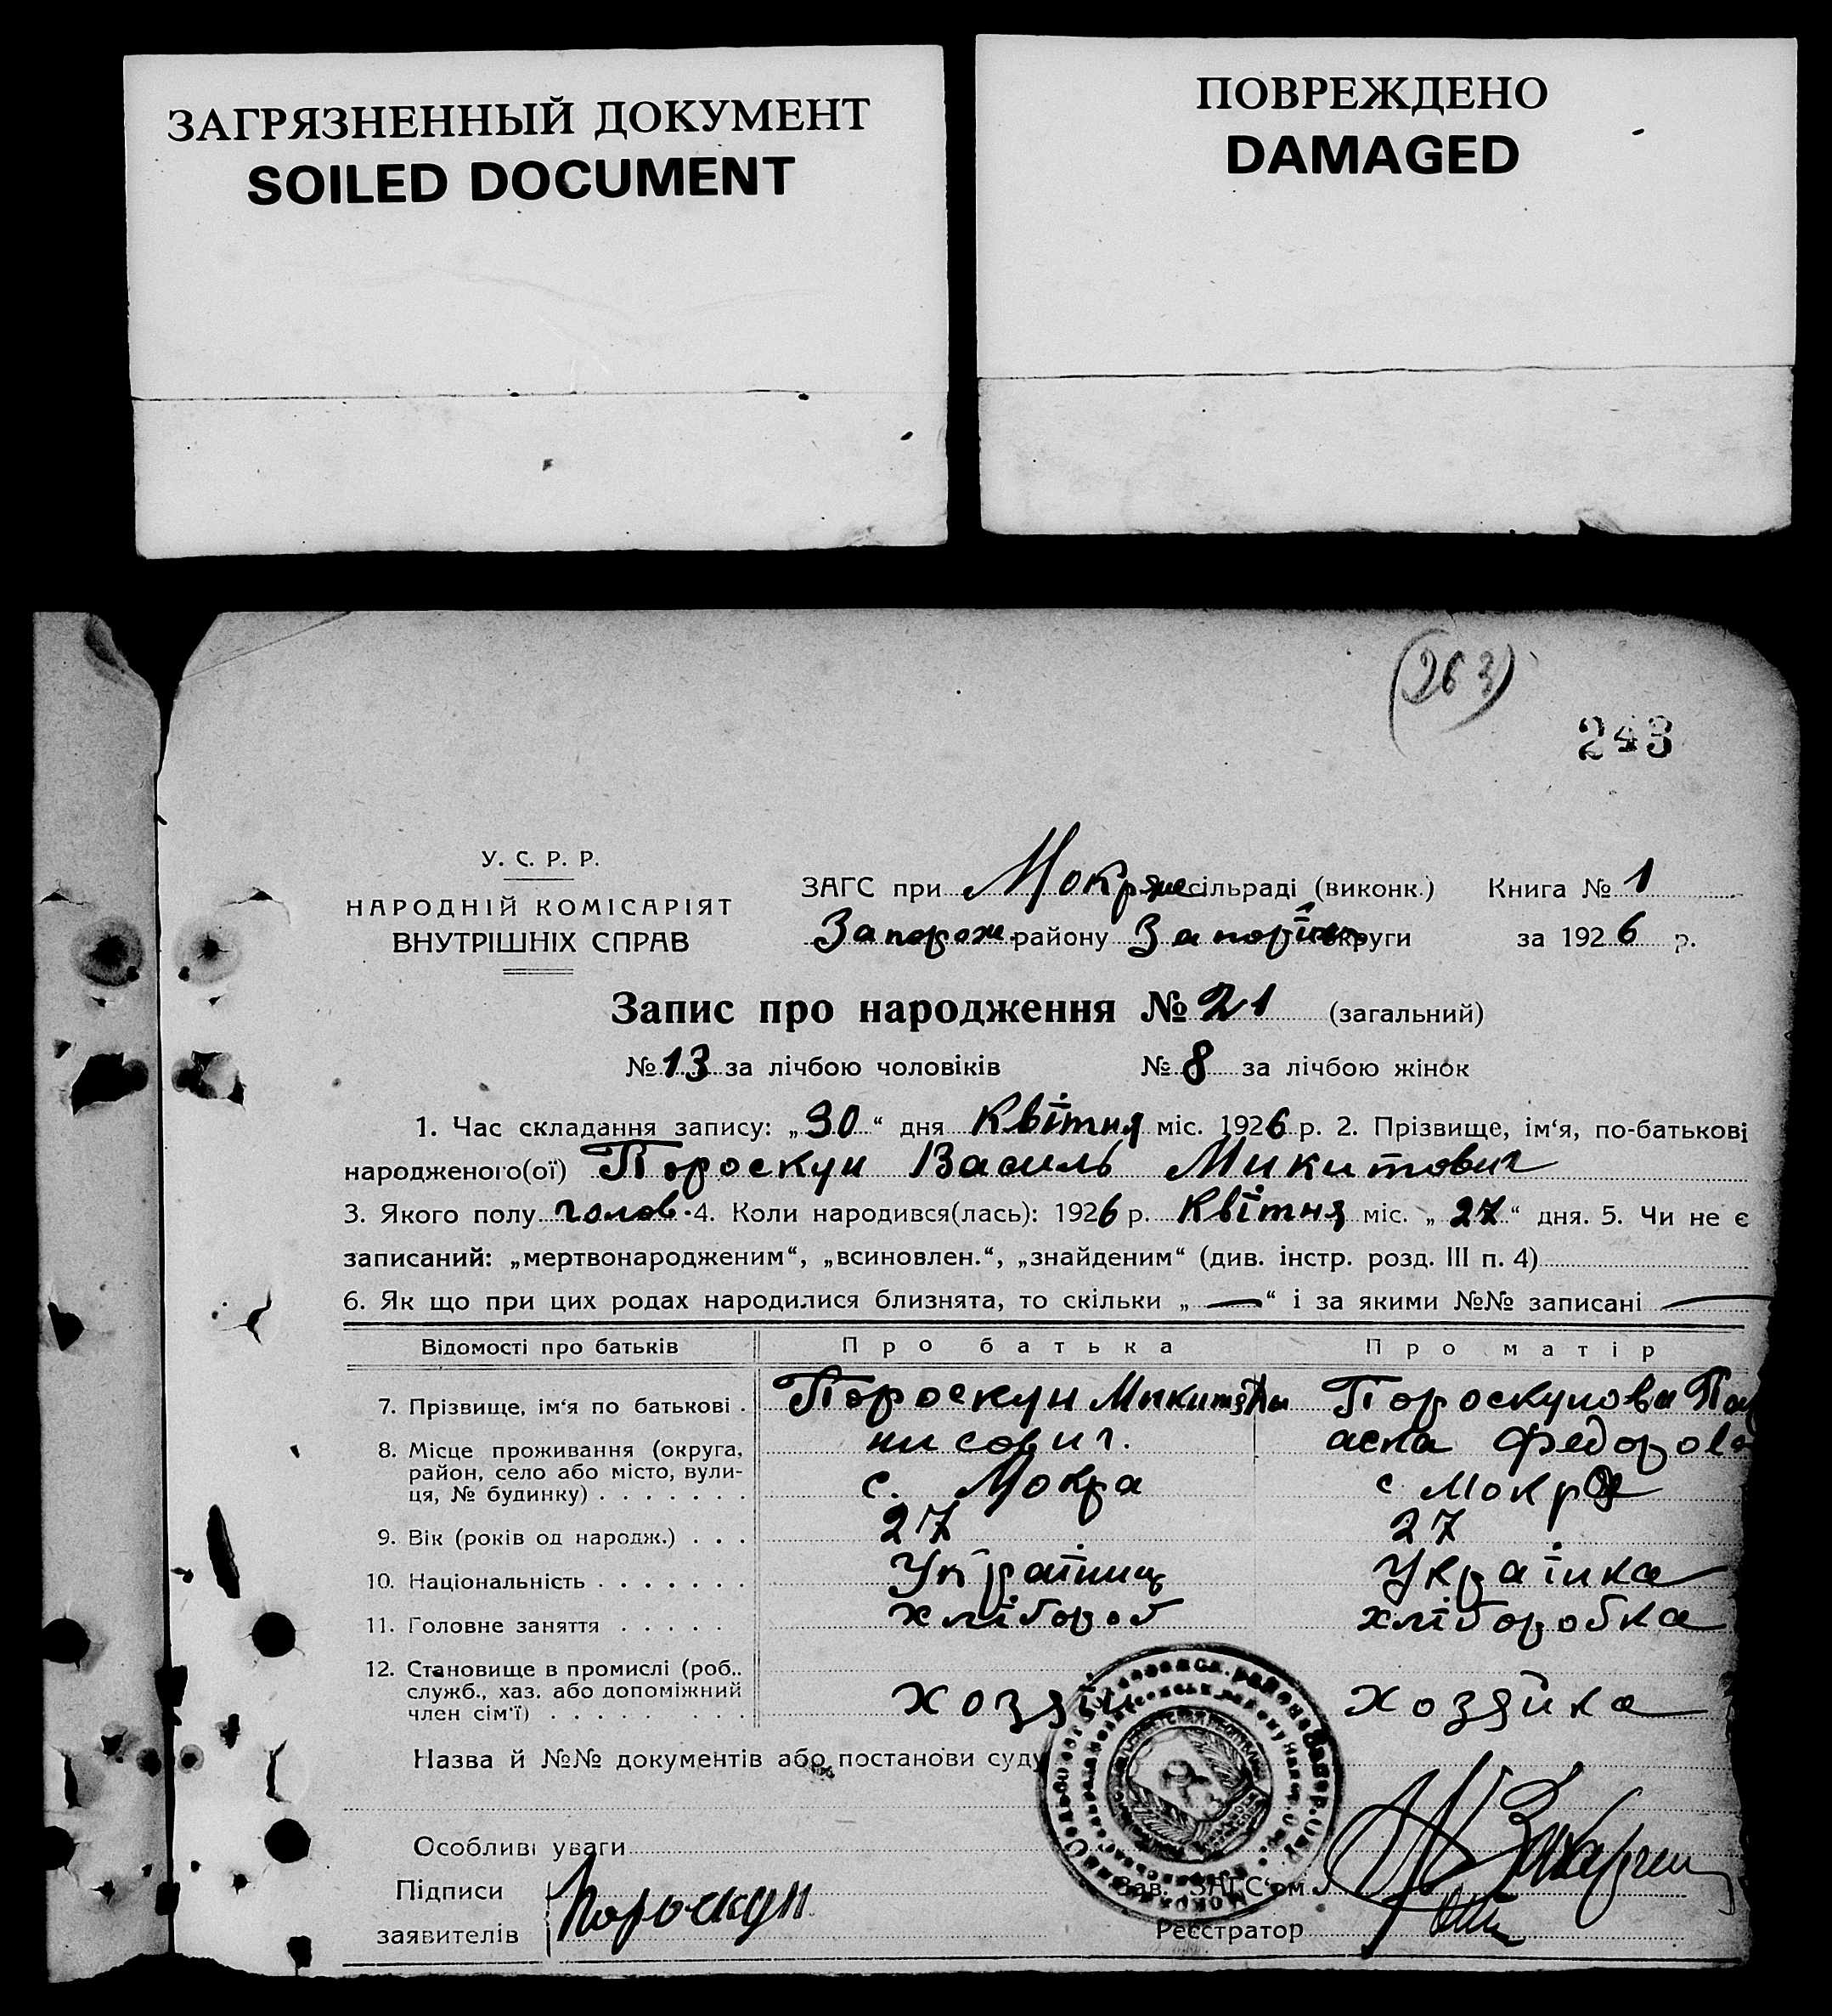 ЗАГРЯЗНЕННЫЙ ДОКУМЕНТ
SOILED DOCUMENT
ПОВРЕЖДЕНО
DAMAGED
(263)
243
У. С. Р. Р.
НАРОДНІЙ КОМІСАРІЯТ
ВНУТРІШНІХ СПРАВ
ЗАГС при Мокрян сільраді (виконк.) Книга № 1
Запорож. району Запоріж округи за 1926 р.
Запис про народження № 21 (загальний)
№ 13 за лічбою чоловіків № 8 за лічбою жінок
1. Час складання запису: „30“ дня Квітня міс. 1926 р. 2. Прізвище, ім‘я, по-батькові
народженого(ої) Пороскун Василь Микитович
3. Якого полу чолов. 4. Коли народився(лась): 1926 р. Квітня міс. „27“ дня. 5. Чи не є
записаний: „мертвонародженим“, „всиновлен.“, „знайденим“ (див. інстр. розд. III п. 4)
6. Як що при цих родах народилися близнята, то скільки „—“ і за якими №№ записані —
Відомості про батьків Про батька Про матір
7. Прізвище, ім‘я по батькові . Пороскун Микита Ди Пороскунова Па
нисович. аска Федоров
8. Місце проживання (округа,
район, село або місто, вули-
ця, № будинку) . . . . . . . с. Мокра с Мокра
9. Вік (років од народж.) . . . 27 27
10. Національність . . . . . . . Українц Українка
11. Головне заняття . . . . . хлібороб хліборобка
12. Становище в промислі (роб..
служб., хаз. або допоміжний
член сім‘ї) . . . . . . . . хозяїн хозяйка
Назва й №№ документів або постанови суду
Особливі уваги
Підписи
заявителів Пороскун
Зав. „ЗАГС‘ом
Реєстратор